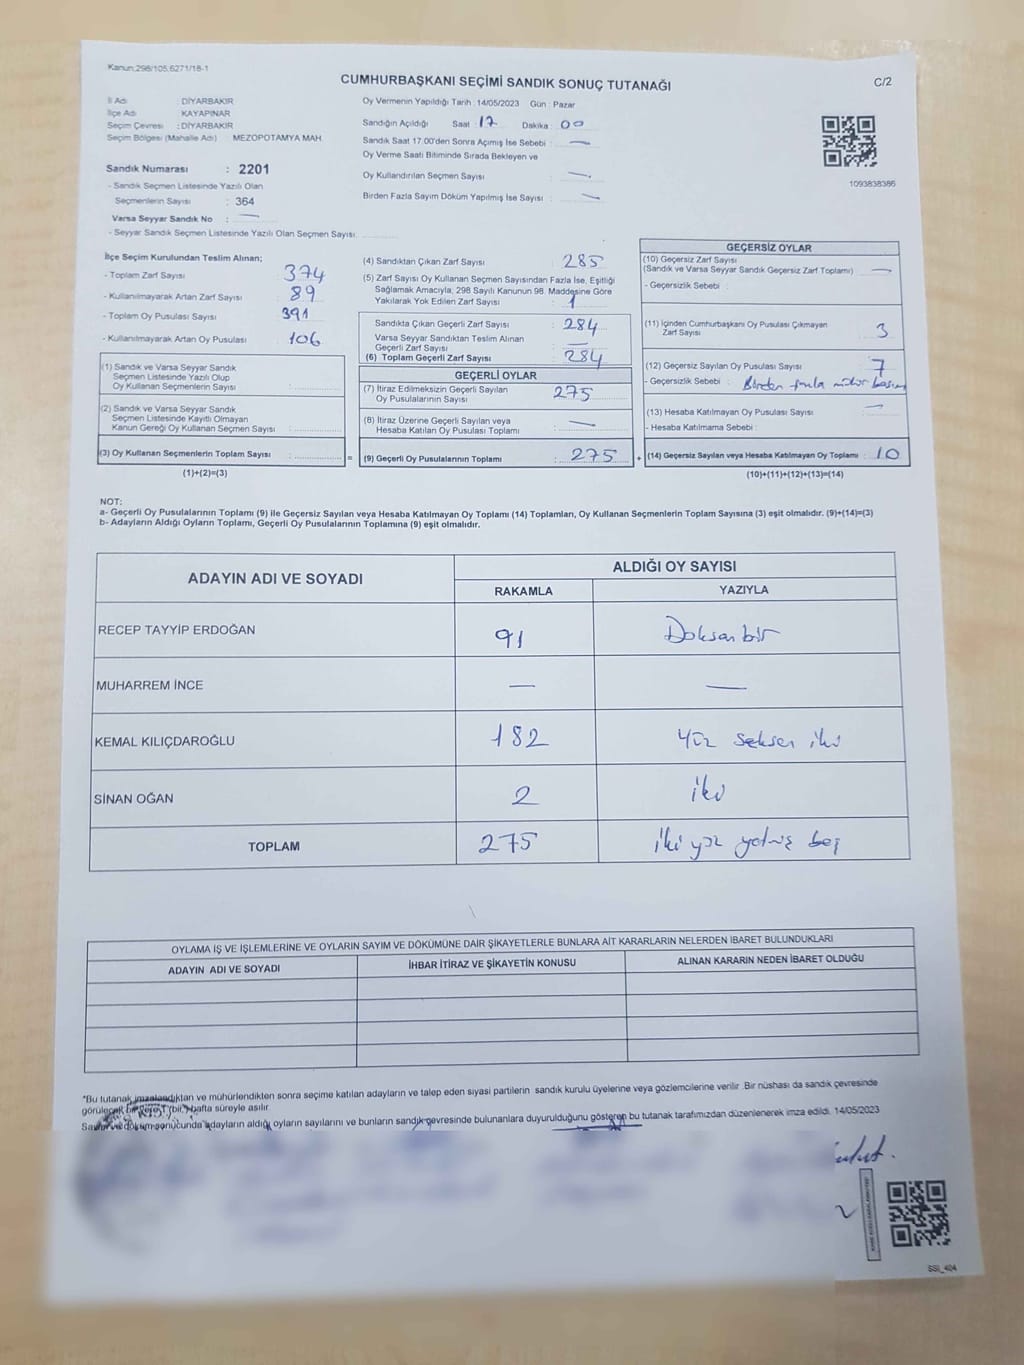 Kanun:298/105,6271/18-1
CUMHURBAŞKANI SEÇİMİ SANDIK SONUÇ TUTANAĞI
C/2
İl Adı : DİYARBAKIR
İlçe Adı : KAYAPINAR
Seçim Çevresi : DİYARBAKIR
Seçim Bölgesi (Mahalle Adı) : MEZOPOTAMYA MAH.
Oy Vermenin Yapıldığı Tarih : 14/05/2023 Gün : Pazar
Sandığın Açıldığı Saat : 17 Dakika : 00
Sandık Saat 17.00'den Sonra Açımış İse Sebebi : —
Oy Verme Saati Bitiminde Sırada Bekleyen ve
Oy Kullandırılan Seçmen Sayısı : —
Birden Fazla Sayım Döküm Yapılmış İse Sayısı : —
1093838386
Sandık Numarası : 2201
- Sandık Seçmen Listesinde Yazılı Olan
Seçmenlerin Sayısı : 364
Varsa Seyyar Sandık No : —
- Seyyar Sandık Seçmen Listesinde Yazılı Olan Seçmen Sayısı:
İlçe Seçim Kurulundan Teslim Alınan;
- Toplam Zarf Sayısı : 374
- Kullanılmayarak Artan Zarf Sayısı : 89
- Toplam Oy Pusulası Sayısı : 391
- Kullanılmayarak Artan Oy Pusulası : 106
(1) Sandık ve Varsa Seyyar Sandık
Seçmen Listesinde Yazılı Olup
Oy Kullanan Seçmenlerin Sayısı :
(2) Sandık ve Varsa Seyyar Sandık
Seçmen Listesinde Kayıtlı Olmayan
Kanun Gereği Oy Kullanan Seçmen Sayısı :
(3) Oy Kullanan Seçmenlerin Toplam Sayısı :
(1)+(2)=(3)
(4) Sandıktan Çıkan Zarf Sayısı : 285
(5) Zarf Sayısı Oy Kullanan Seçmen Sayısından Fazla İse, Eşitliği
Sağlamak Amacıyla, 298 Sayılı Kanunun 98. Maddesine Göre
Yakılarak Yok Edilen Zarf Sayısı : 1
Sandıkta Çıkan Geçerli Zarf Sayısı : 284
Varsa Seyyar Sandıktan Teslim Alınan
Geçerli Zarf Sayısı : —
(6) Toplam Geçerli Zarf Sayısı : 284
GEÇERLİ OYLAR
(7) İtiraz Edilmeksizin Geçerli Sayılan
Oy Pusulalarının Sayısı : 275
(8) İtiraz Üzerine Geçerli Sayılan veya
Hesaba Katılan Oy Pusulası Toplamı : —
= (9) Geçerli Oy Pusulalarının Toplamı : 275
GEÇERSİZ OYLAR
(10) Geçersiz Zarf Sayısı
(Sandık ve Varsa Seyyar Sandık Geçersiz Zarf Toplamı) : —
- Geçersizlik Sebebi :
(11) İçinden Cumhurbaşkanı Oy Pusulası Çıkmayan
Zarf Sayısı : 3
(12) Geçersiz Sayılan Oy Pusulası Sayısı : 7
- Geçersizlik Sebebi : Birden fazla mühür basımı
(13) Hesaba Katılmayan Oy Pusulası Sayısı : —
- Hesaba Katılmama Sebebi :
+ (14) Geçersiz Sayılan veya Hesaba Katılmayan Oy Toplamı : 10
(10)+(11)+(12)+(13)=(14)
NOT:
a- Geçerli Oy Pusulalarının Toplamı (9) ile Geçersiz Sayılan veya Hesaba Katılmayan Oy Toplamı (14) Toplamları, Oy Kullanan Seçmenlerin Toplam Sayısına (3) eşit olmalıdır. (9)+(14)=(3)
b- Adayların Aldığı Oyların Toplamı, Geçerli Oy Pusulalarının Toplamına (9) eşit olmalıdır.
ADAYIN ADI VE SOYADI
ALDIĞI OY SAYISI
RAKAMLA YAZIYLA
RECEP TAYYİP ERDOĞAN 91 Doksan bir
MUHARREM İNCE — —
KEMAL KILIÇDAROĞLU 182 Yüz seksen iki
SİNAN OĞAN 2 iki
TOPLAM 275 iki yüz yetmiş beş
OYLAMA İŞ VE İŞLEMLERİNE VE OYLARIN SAYIM VE DÖKÜMÜNE DAİR ŞİKAYETLERLE BUNLARA AİT KARARLARIN NELERDEN İBARET BULUNDUKLARI
ADAYIN ADI VE SOYADI İHBAR İTİRAZ VE ŞİKAYETİN KONUSU ALINAN KARARIN NEDEN İBARET OLDUĞU
*Bu tutanak imzalandıktan ve mühürlendikten sonra seçime katılan adayların ve talep eden siyasi partilerin sandık kurulu üyelerine veya gözlemcilerine verilir. Bir nüshası da sandık çevresinde
görülecek bir yere 1 (bir) hafta süreyle asılır.
Sayım ve döküm sonucunda adayların aldığı oyların sayılarını ve bunların sandık çevresinde bulunanlara duyurulduğunu gösteren bu tutanak tarafımızdan düzenlenerek imza edildi. 14/05/2023
SSI_404